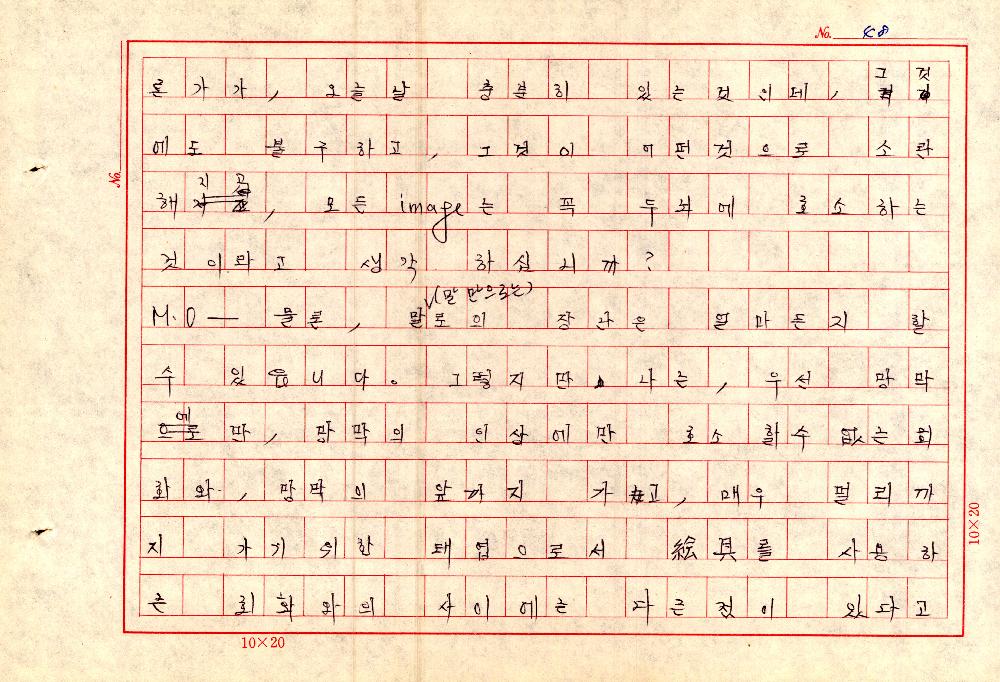 No. 48
론가가, 오늘날 충분히 있는 것인데, 그것
에도 불구하고, 그것이 어떤것으로 소란
해지곤, 모든 image는 꼭 두뇌에 호소하는
것이라고 생각 하십니까?
(말 만으로는)
M.O — 물론, 말로의 장난은 얼마든지 할
수 있읍니다. 그렇지만 나는, 우선 망막
에만, 망막의 인상에만 호소 할수 없는 회
화와, 망막의 앞까지 가고, 매우 멀리까
지 가기 위한 태엽으로서 絵具를 사용하
는 회화와의 사이에는 다른점이 있다고
No.
10×20
10×20